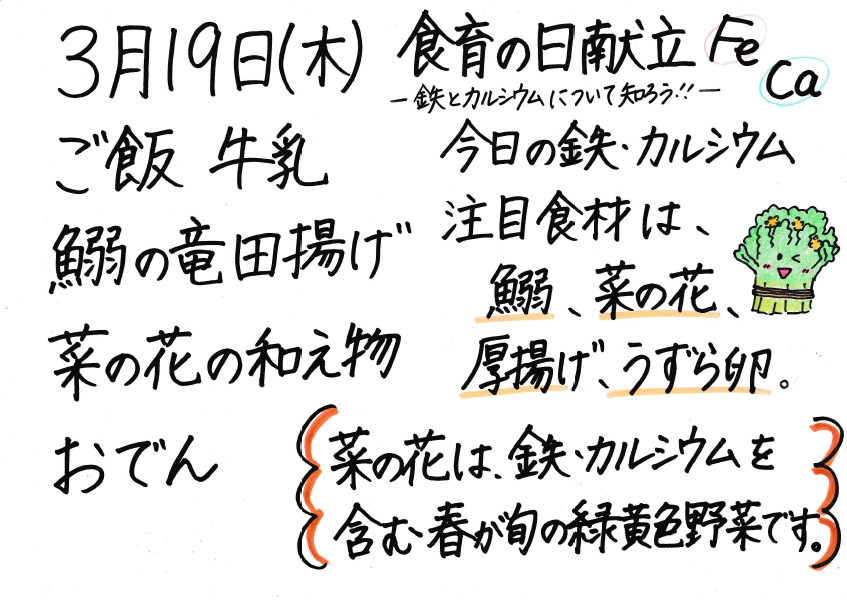 3月19日(木)
食育の日献立 Fe Ca
－鉄とカルシウムについて知ろう!!－
ご飯 牛乳
鰯の竜田揚げ
菜の花の和え物
おでん
今日の鉄・カルシウム
注目食材は、
鰯、菜の花、
厚揚げ、うずら卵。
菜の花は、鉄・カルシウムを
含む春が旬の緑黄色野菜です。